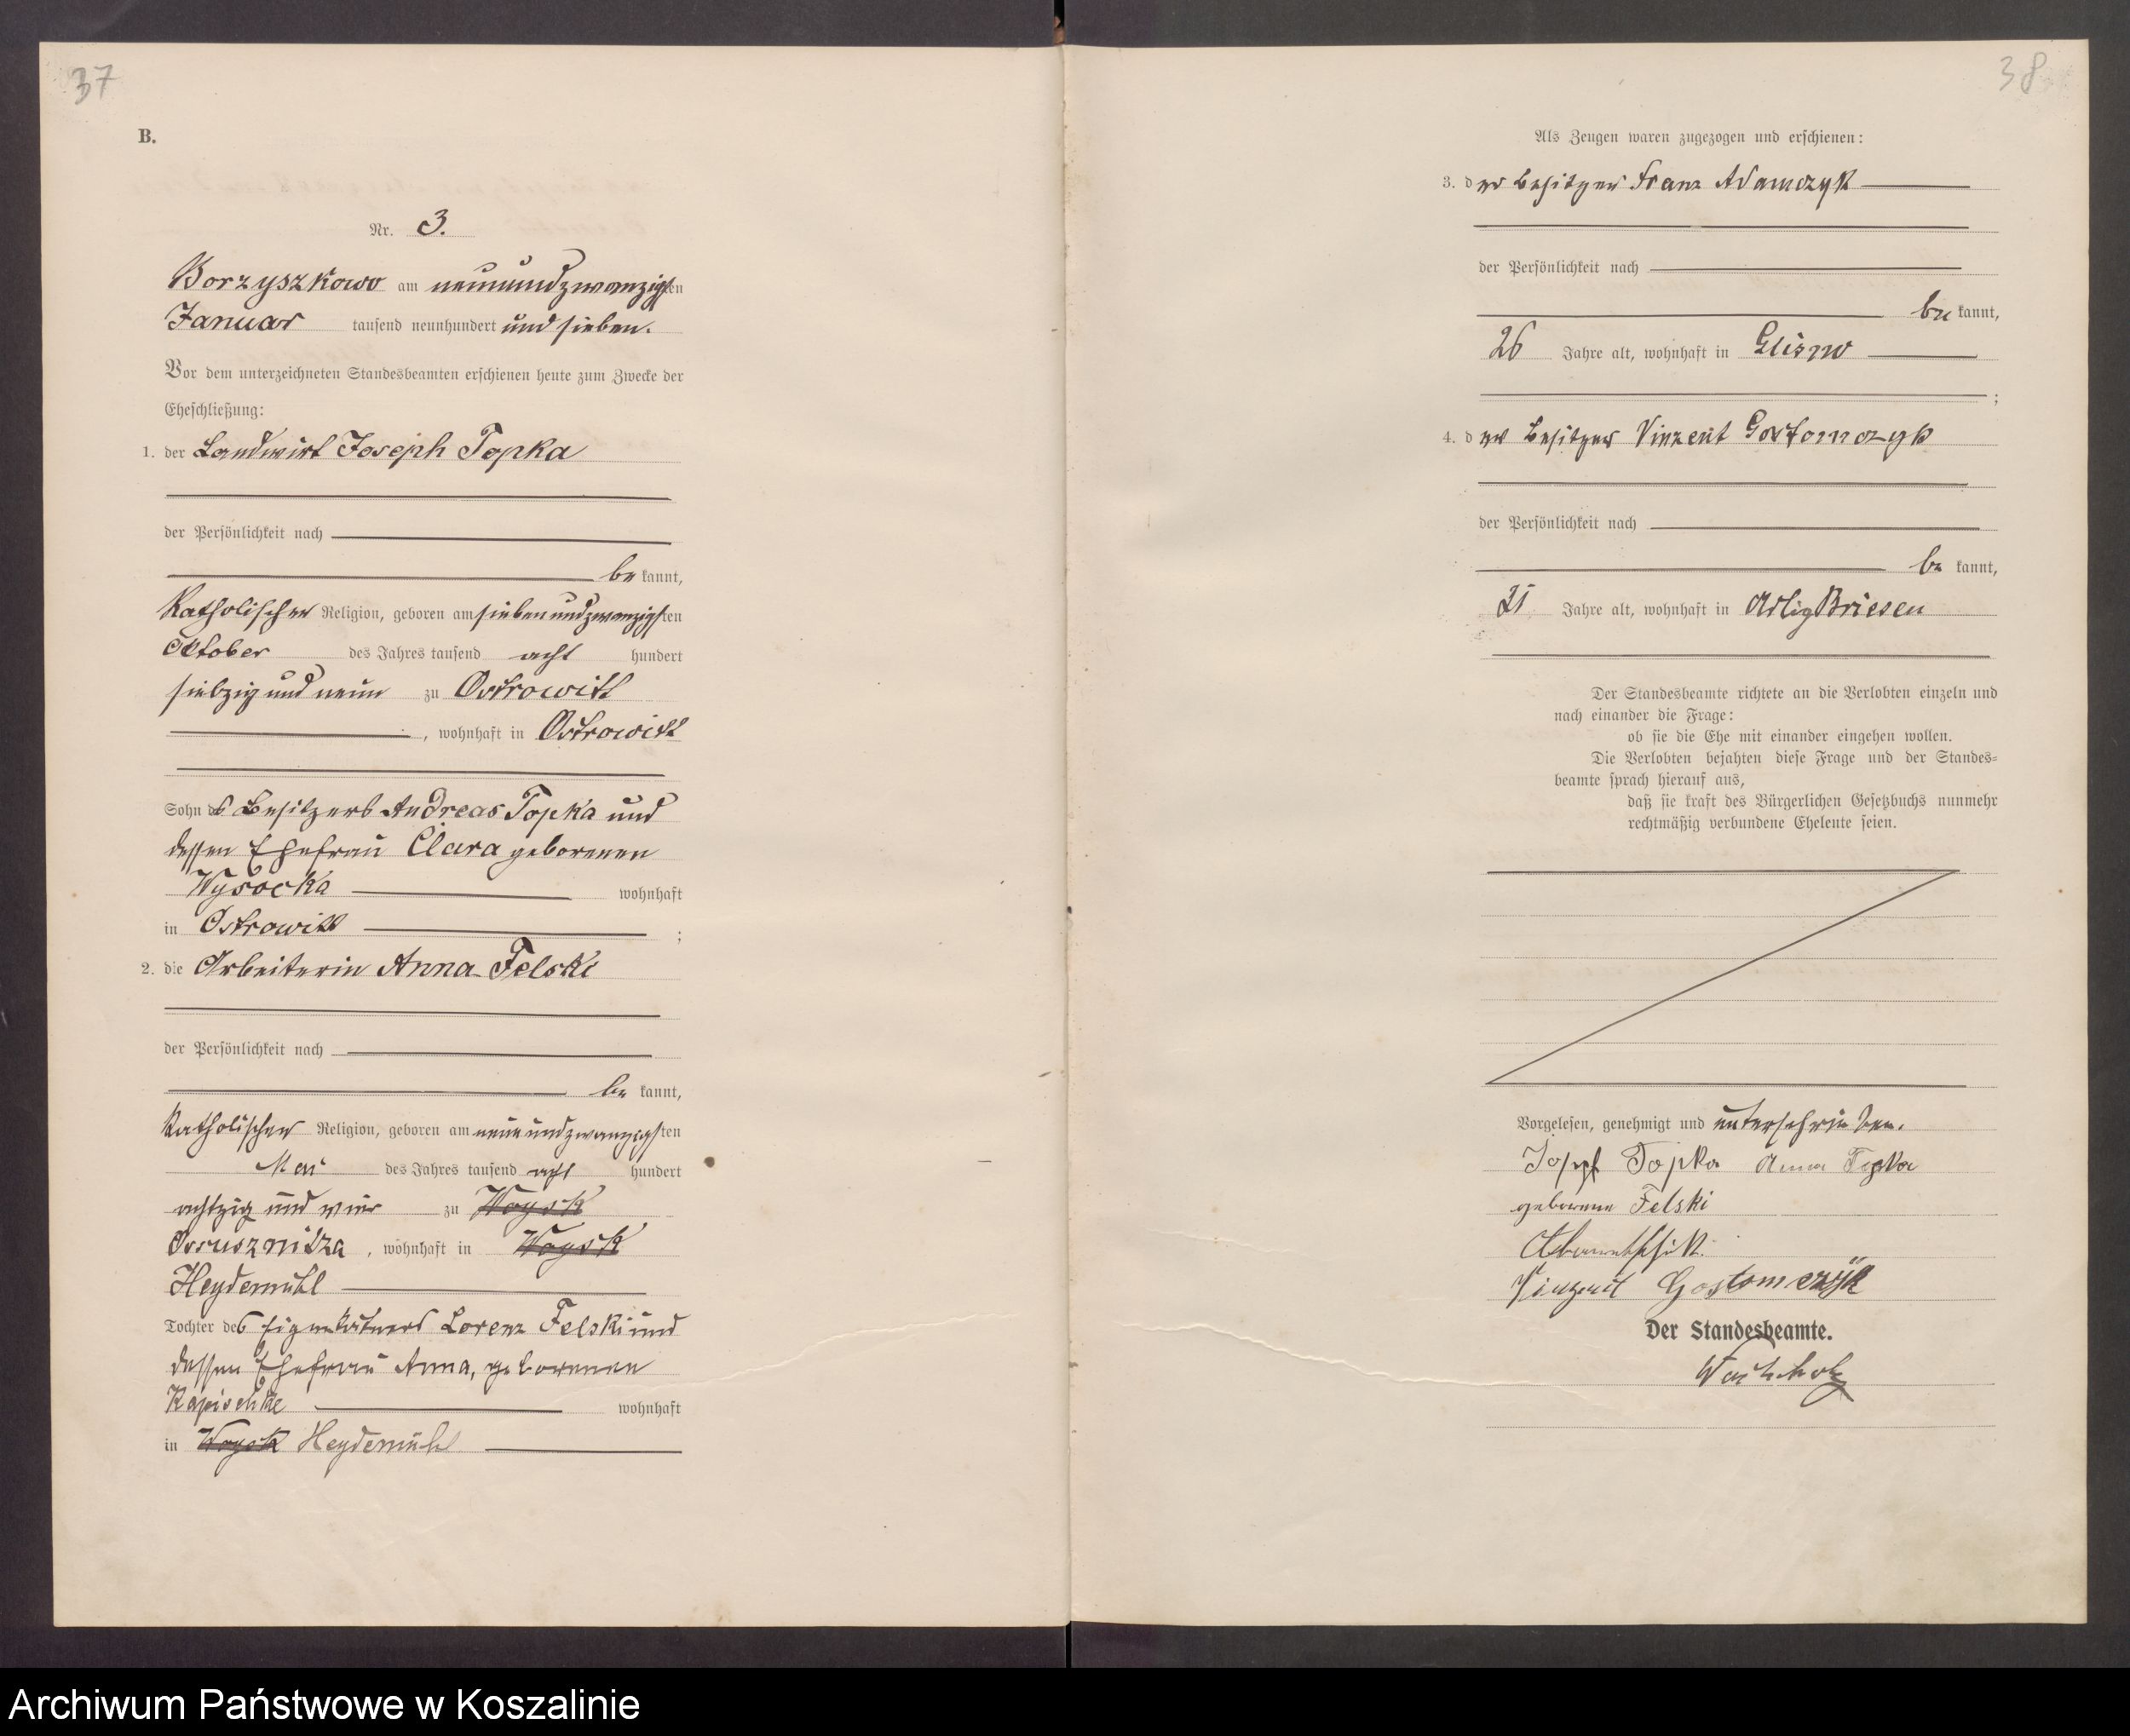 37
B.
Nr. 3.
Borzyszkowo am neunundzwanzigsten
Januar tausend neunhundert und sieben.
Vor dem unterzeichneten Standesbeamten erschienen heute zum Zwecke der
Eheschließung:
1. der Landwirt Joseph Topka
der Persönlichkeit nach
be kannt,
Katholischer Religion, geboren am siebenundzwanzigsten
Oktober des Jahres tausend acht hundert
siebzig und neun zu Ostrowitt
, wohnhaft in Ostrowitt
Sohn des Besitzers Andreas Topka und
dessen Ehefrau Clara geborenen
Wysocka wohnhaft
in Ostrowitt ;
2. die Arbeiterin Anna Felski
der Persönlichkeit nach
be kannt,
Katholischer Religion, geboren am neunundzwanzigsten
Mai des Jahres tausend acht hundert
achtzig und vier zu Woysk
Ossusznitza, wohnhaft in Woysk
Heydemühl
Tochter des Eigenkätners Lorenz Felski und
dessen Ehefrau Anna, geborenen
Kapischke wohnhaft
in Woysk Heydemühl
38
Als Zeugen waren zugezogen und erschienen:
3. der Besitzer Franz Adamczyk
der Persönlichkeit nach
be kannt,
26 Jahre alt, wohnhaft in Glisno
;
4. der Besitzer Vinzent Gostomczyk
der Persönlichkeit nach
be kannt,
Jahre alt, wohnhaft in Adlig Briesen
Der Standesbeamte richtete an die Verlobten einzeln und
nach einander die Frage:
ob sie die Ehe mit einander eingehen wollen.
Die Verlobten bejahten diese Frage und der Standes-
beamte sprach hierauf aus,
daß sie kraft des Bürgerlichen Gesetzbuchs nunmehr
rechtmäßig verbundene Eheleute seien.
Vorgelesen, genehmigt und unterschrieben.
Josef Topka Anna Topka
geborene Felski
Vinzent Gostomczyk
Der Standesbeamte.
Archiwum Państwowe w Koszalinie